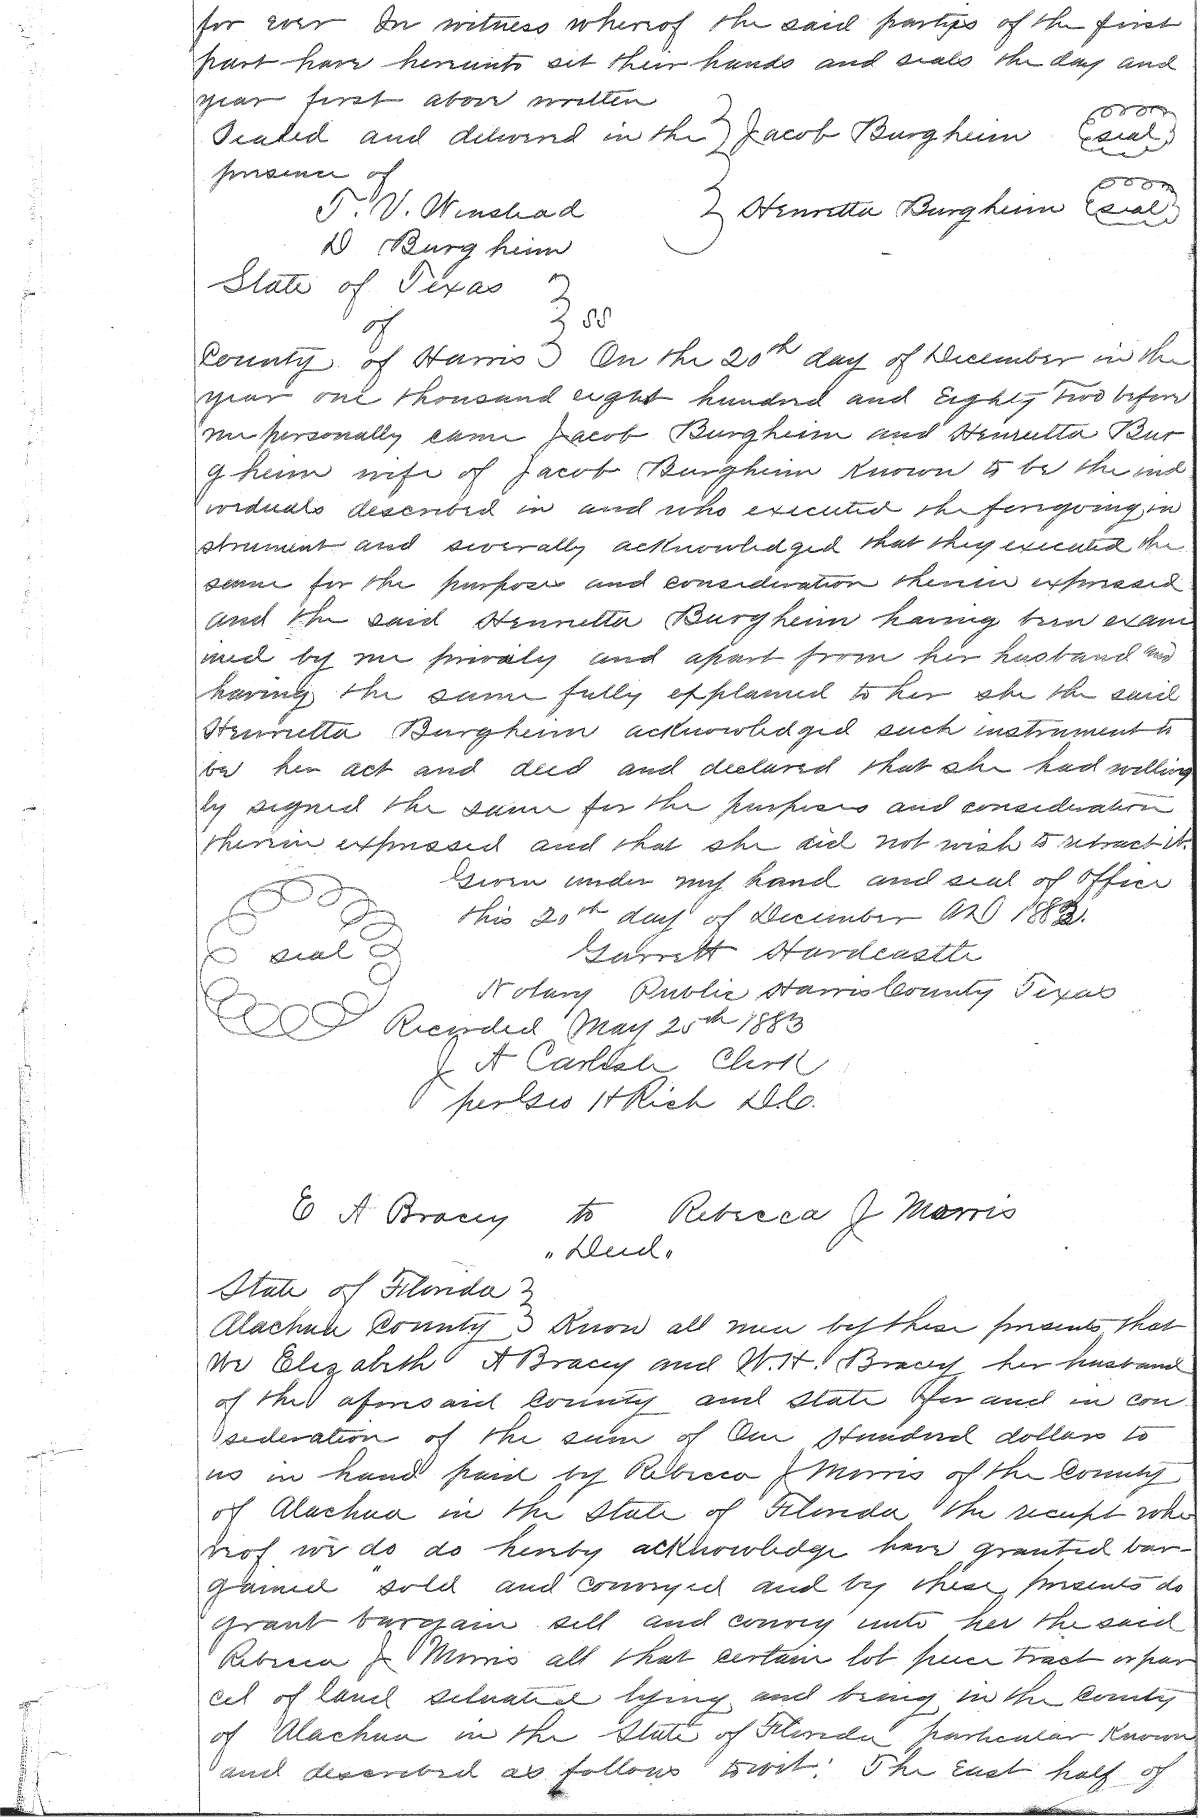 for ever In witness whereof the said parties of the first
part have hereunto set their hands and seals the day and
year first above written
Sealed and delivered in the Jacob Burgheim seal
presence of
T. V. Winstead Henrietta Burgheim seal
D Burgheim
State of Texas
of ss
County of Harris On the 20th day of December in the
year one thousand eight hundred and Eighty Two before
me personally came Jacob Burgheim and Henrietta Bur
gheim wife of Jacob Burgheim Known to be the ind
ividuals described in and who executed the foregoing in
strument and severally acknowledged that they executed the
same for the purposes and consideration therein expressed
and the said Henrietta Burgheim having been exam
ined by me privily and apart from her husband and
having the same fully explained to her she the said
Henrietta Burgheim acknowledged such instrument to
be her act and deed and declared that she had willing
ly signed the same for the purposes and consideration
therein expressed and that she did not wish to retract it.
Given under my hand and seal of office
this 20th day of December AD 1882.
seal Garrett Hardcastle
Notary Public Harris County Texas
Recorded May 25th 1883
J A Carlisle Clerk
per Geo H Rich D.C.
E A Bracey to Rebecca J Morris
"Deed"
State of Florida
Alachua County Know all men by these presents that
We Elizabeth A Bracey and W. H. Bracey her husband
of the aforesaid County and State for and in con
sideration of the sum of One Hundred dollars to
us in hand paid by Rebecca J Morris of the County
of Alachua in the State of Florida the receipt whe
reof we do do hereby acknowledge have granted bar-
gained sold and conveyed and by these presents do
grant bargain sell and convey unto her the said
Rebecca J Morris all that certain lot piece tract or par
cel of land situated lying and being in the County
of Alachua in the State of Florida particular Known
and described as follows towit: The East half of